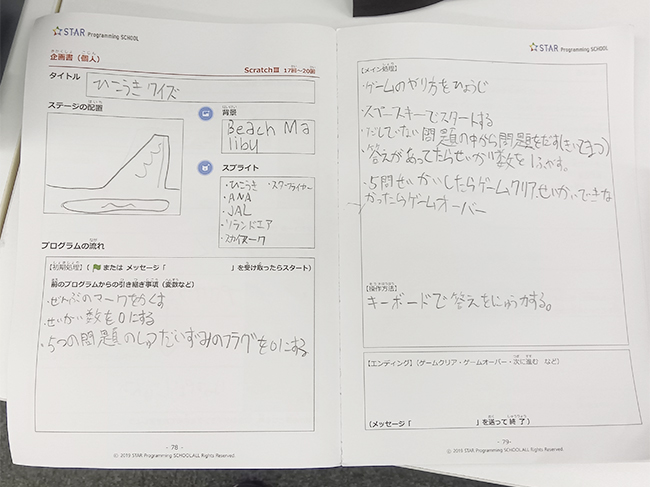 STAR Programming SCHOOL
企画書（個人）
ScratchⅢ 17回～20回
タイトル
ひこうきクイズ
ステージの配置
背景
Beach Ma
libu
スプライト
・ひこうき ・スターフライヤー
・ANA
・JAL
・ソラシドエア
・スカイマーク
プログラムの流れ
【初期処理】（ または メッセージ「 」を受け取ったらスタート）
前のプログラムからの引き継ぎ事項（変数など）
・ぜんぶのマークをかくす
・せいかい数を0にする
・5つの問題のしゅつだいずみのフラグを0にする
- 78 -
ⓒ 2019 STAR Programming SCHOOL ALL Rights Reserved.
STAR Programming SCHOOL
【メイン処理】
・ゲームのやり方をひょうじ
・スペースキーでスタートする
・だしていない問題の中から問題をだす
・答えがあってたらせいかい数を1ふやす。
・5問せいかいしたらゲームクリアせいかいできな
かったらゲームオーバー
【操作方法】
キーボードで答えをにゅう力する。
【エンディング】（ゲームクリア・ゲームオーバー・次に進む など）
（メッセージ「 」を送って終了）
- 79 -
ⓒ 2019 STAR Programming SCHOOL ALL Rights Reserved.